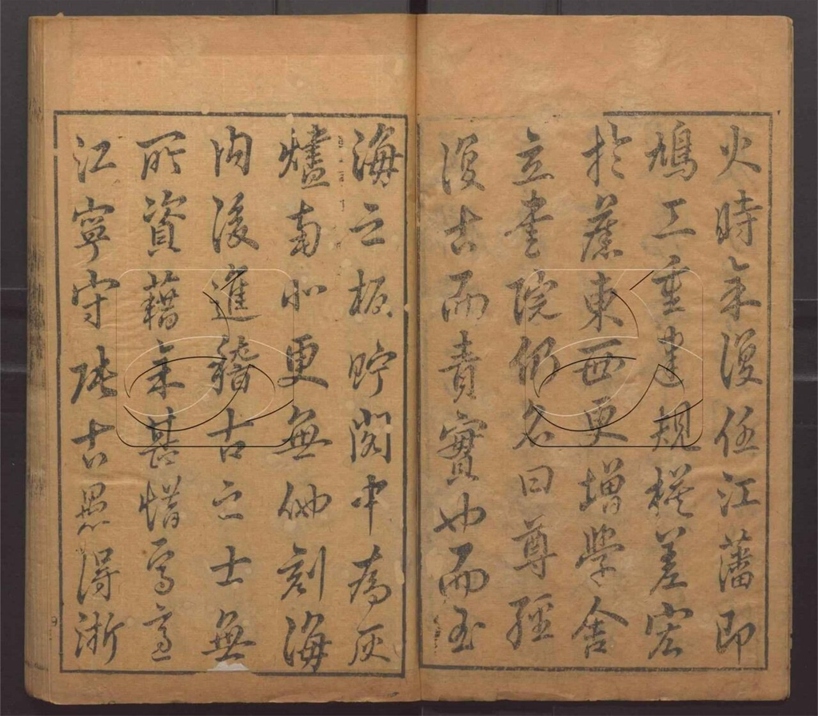 火時余復任江藩即
鳩工重建規模差宏
於舊東西更增學舍
立書院仍名曰尊經
復古而責實也而玉
海之板貯閣中為灰
燼南北更無他刻海
内後進稽古之士無
所資藉余甚惜焉適
江寧守張古愚得浙